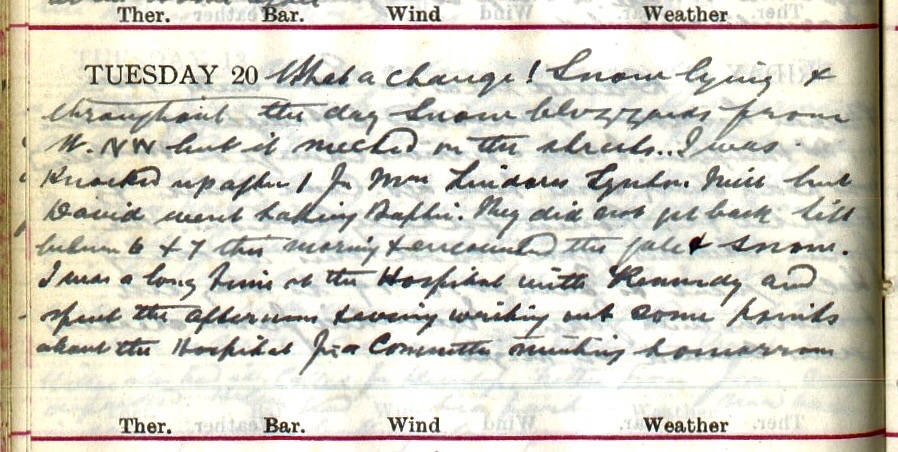 Ther. Bar. Wind Weather
TUESDAY 20 What a change! Snow lying &
throughout the day Snow blizzards from
W. NW but it melted on the streets.. I was
Knocked up after 1 for Mrs Lyndon Mill but
David went taking Baptie. They did not get back till
between 6 & 7 this morning & encountered the gale & snow.
I was a long time at the Hospital with Kennedy and
spent the afternoon & evening writing out some points
about the Hospital for a Committee meeting tomorrow
Ther. Bar. Wind Weather